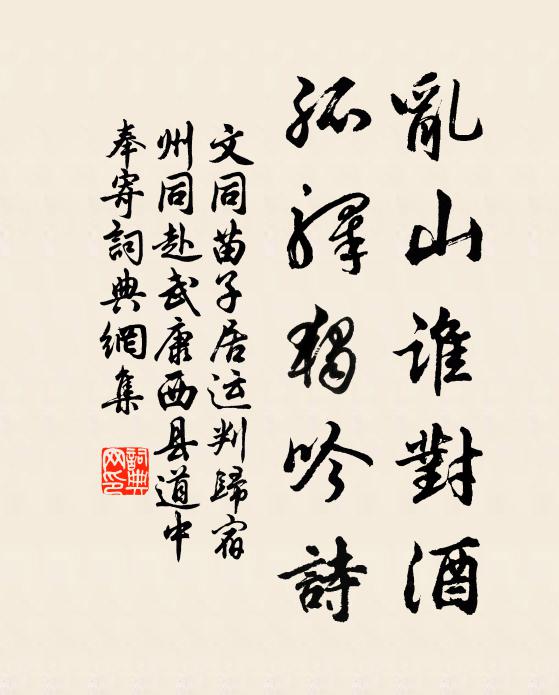 亂山誰對酒
孤驛獨吟詩
文同苗子居运判歸宿
州同赴武康西县道中
奉寄詞典網集
詞典网印